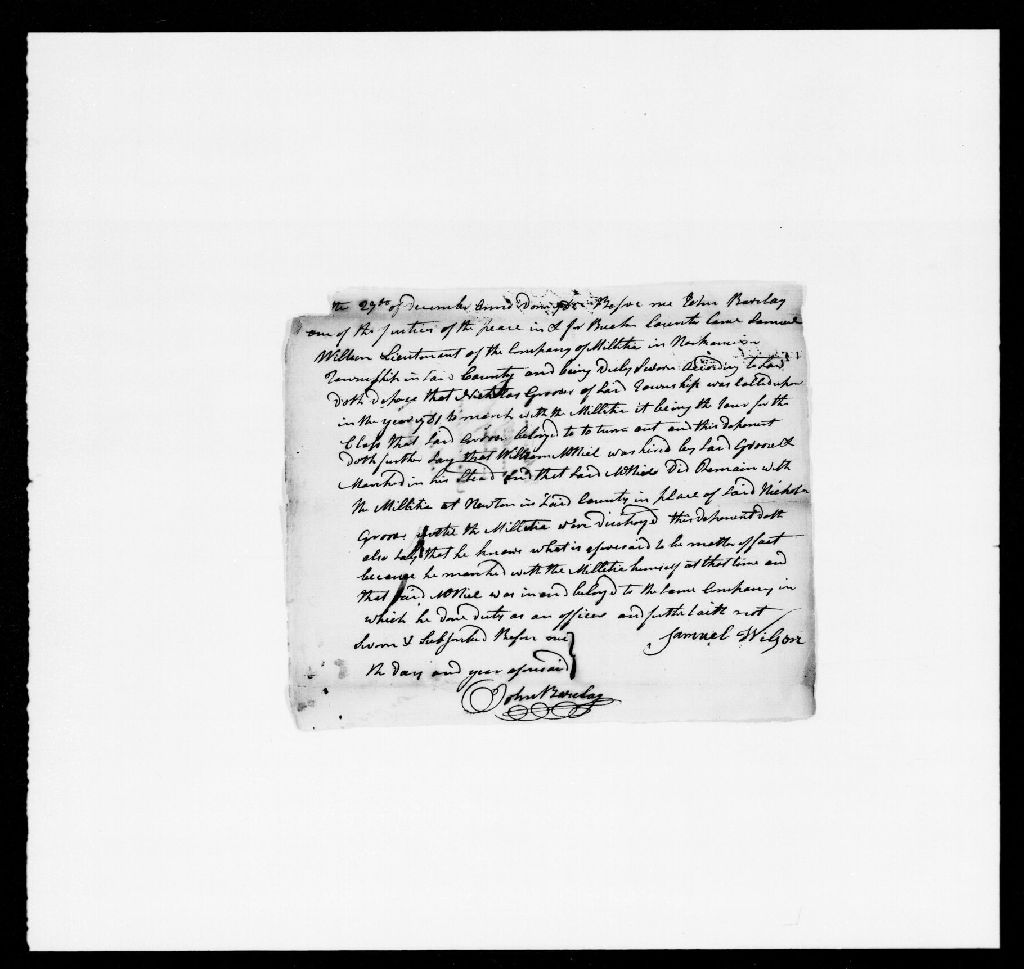 the 29th of December Anno Dom Before me John Barclay
one of the justices of the peace in & for Bucks County Came Samuel
Willson Lieutenant of the Company of Militia in
Township in said County and being Duly Sworn According to Law
doth depose that Nicholas Groves of said Township was Called upon
in the year 1781 to march with the Millitia it being the tour for the
Class that said Groves belonged to to turn out and this deponent
doth further say that William McNiel was hired by said Groves &
Marched in his Stead and that said McNiel Did Remain with
the Millitia at Newton in said County in place of said Nichola
Groves untill the Millitia were discharged this deponent doth
also say that he knows what is aforesaid to be matter of fact
because he marched with the Millitia himself at that time and
that said McNiel was in and belong'd to the same Company in
which he done duty as an officer and further saith not
Sworn & Subscribed Before me Samuel Wilson
the day and year aforesaid
John Barclay